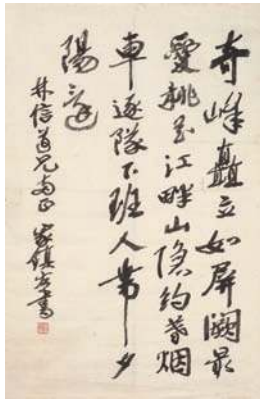 奇峰矗立如屏闕最
愛桃花江畔山隐約暮烟
車逐隊下班人帶夕
陽還
林信道兄留正 家鎮客書